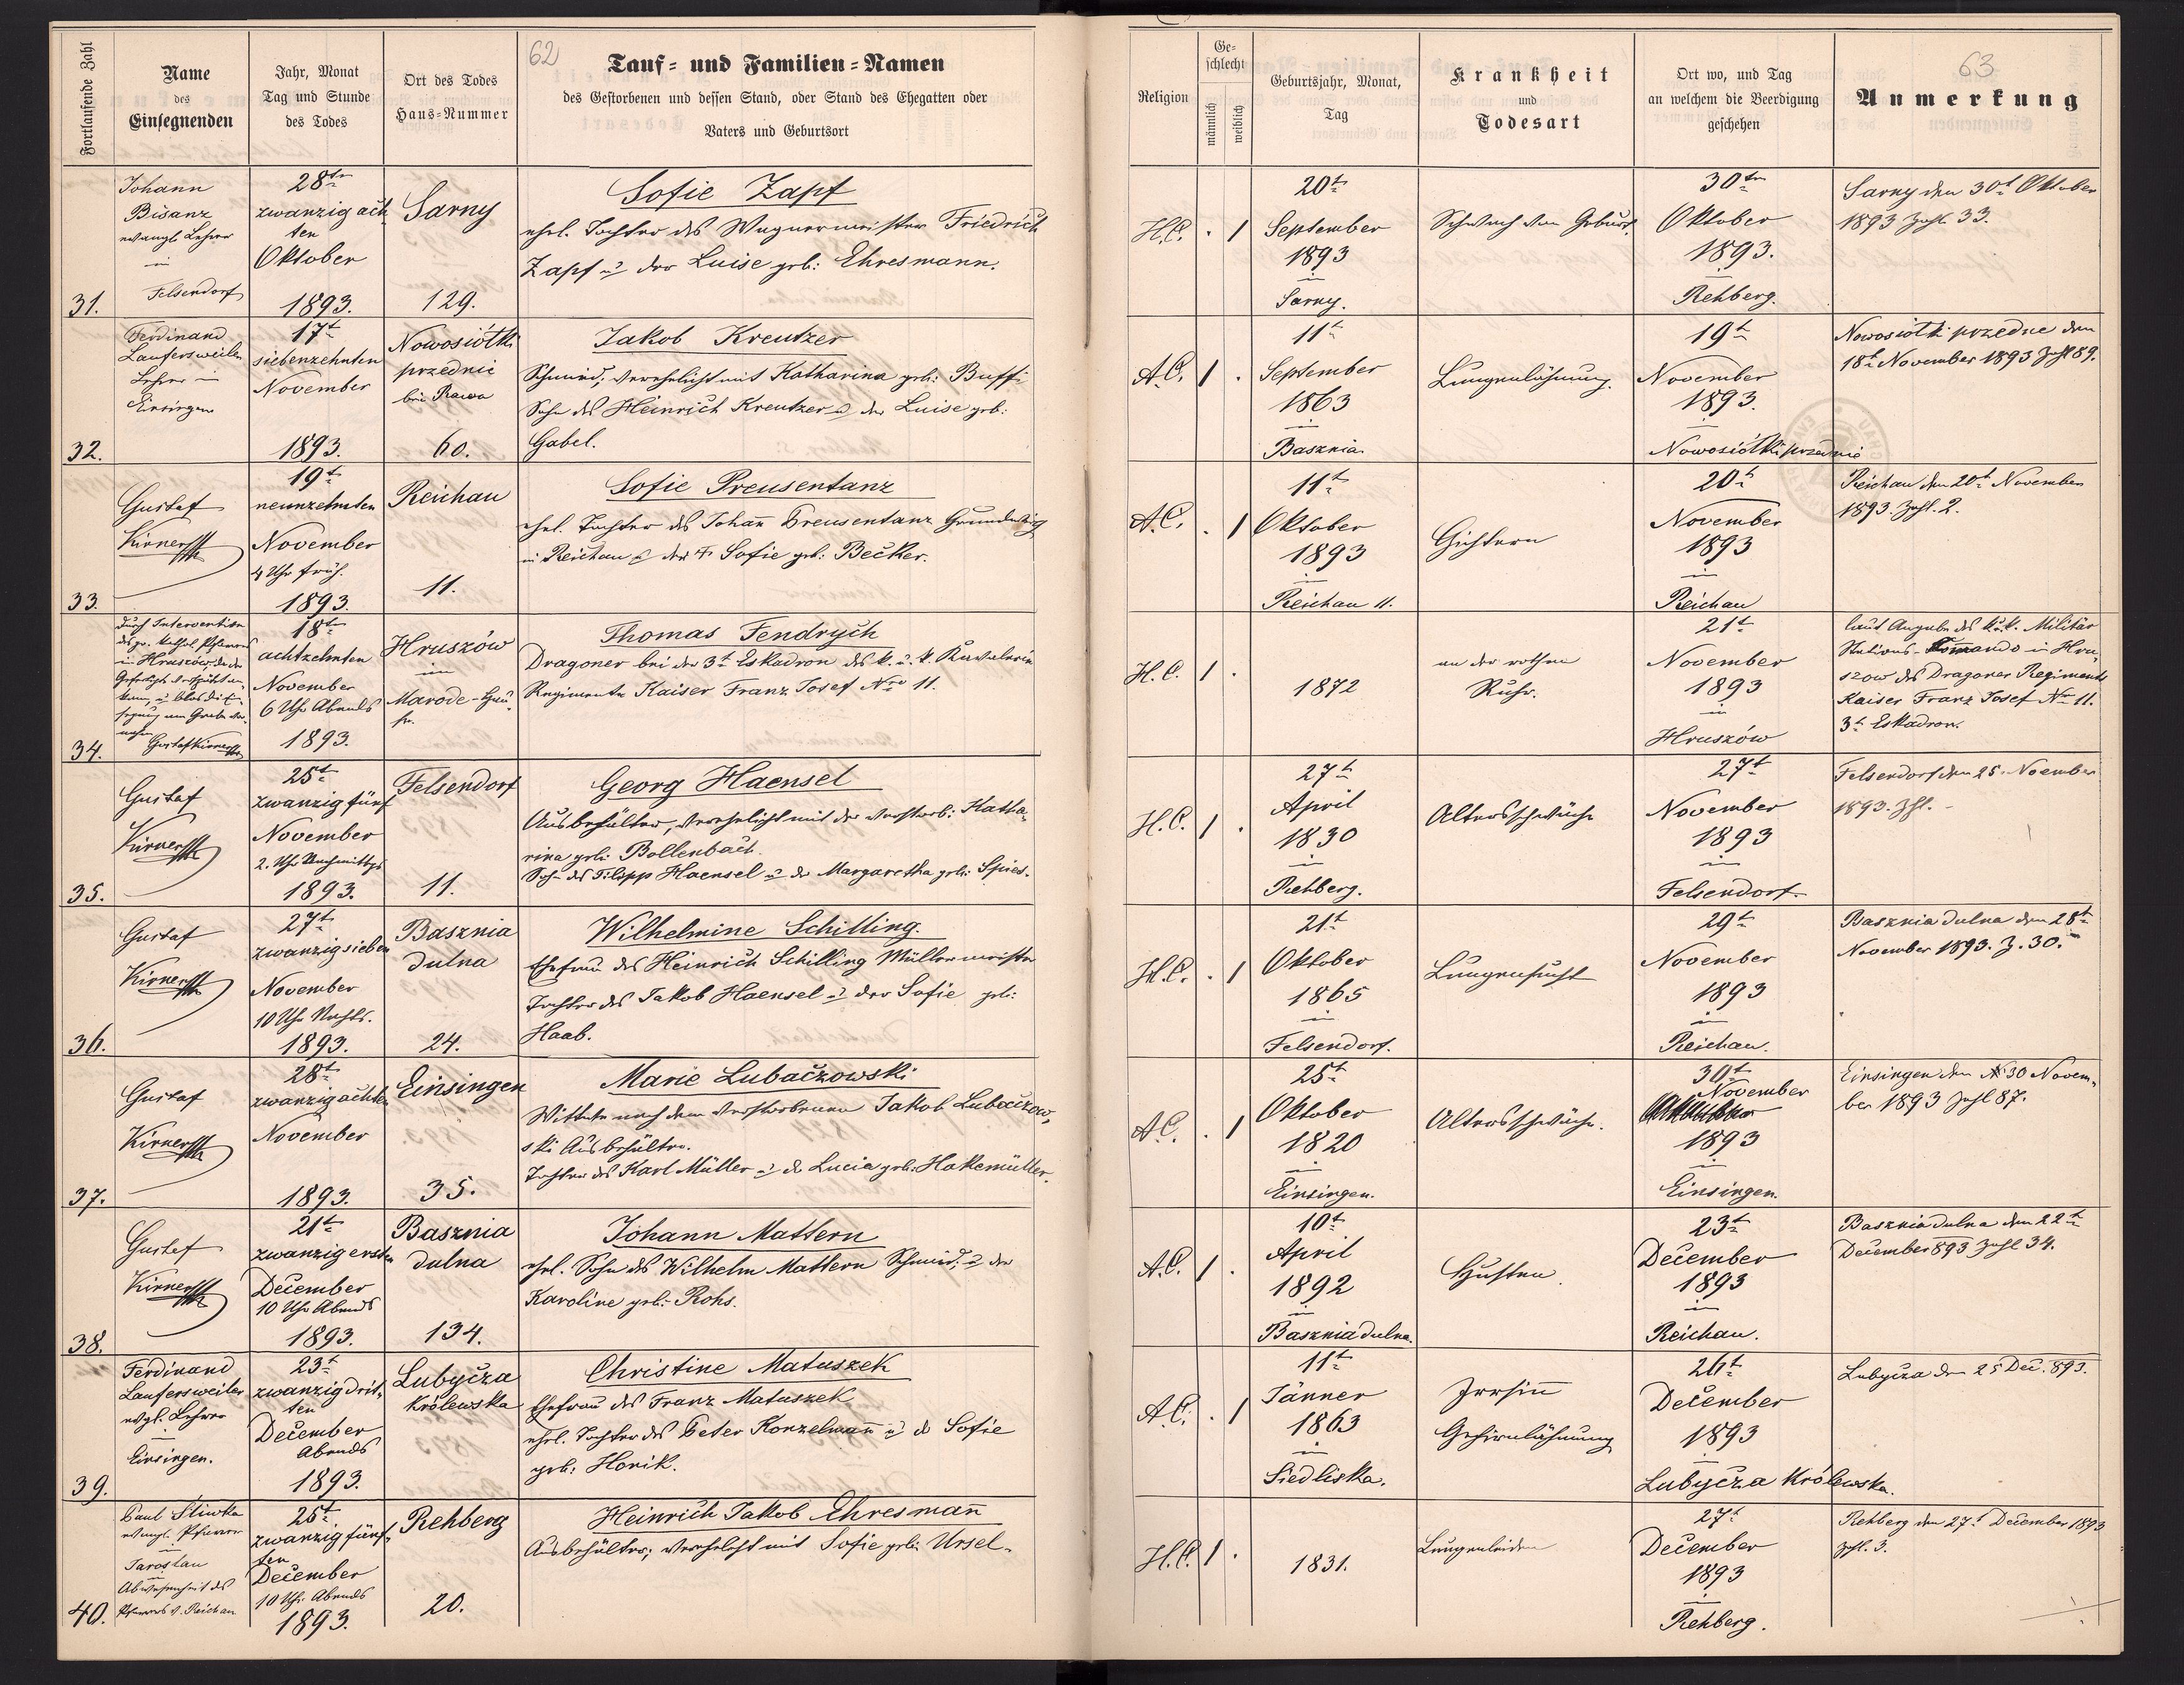 62
Fortlaufende Zahl
Name
des
Einsegnenden
Jahr, Monat
Tag und Stunde
des Todes
Ort des Todes
Haus-Nummer
Tauf- und Familien-Namen
des Gestorbenen und dessen Stand, oder Stand des Ehegatten oder
Vaters und Geburtsort
Religion
Ge-
schlecht
männlich
weiblich
Geburtsjahr, Monat,
Tag
Krankheit
und
Todesart
Ort wo, und Tag
an welchem die Beerdigung
geschehen
63
Anmerkung
31.
Johann
Bisanz
evangl. Lehrer
in
Felsendorf
28t
zwanzig ach
ten
Oktober
1893.
Sarny
129.
Sofie Zapf
ehel. Tochter des Wagnermeister Friedrich
Zapf u. der Luise geb: Ehresmann.
H.C. . 1
20t
September
1893
in
Sarny.
Schwach von Geburt.
30t
Oktober
1893.
in
Rehberg.
Sarny den 30t Oktober
1893 Zahl 33.
32.
Ferdinand
Laufersweiler
Lehrer in
Einsingen
17t
siebenzehnten
November
1893.
Nowosiółki
przednie
bei Rawa
60.
Jakob Kreutzer
Schmied, verehelicht mit Katharina geb: Buffi
Sohn des Heinrich Kreutzer u. der Luise geb:
Gabel.
A.C. 1 .
11t
September
1863
in
Basznia
Lungenlähmung.
19t
November
1893.
in
Nowosiółki przednie
Nowosiółki przednie den
18t November 1893 Zahl 89.
33.
Gustaf
Kirner
19t
neunzehnten
November
4 Uhr früh.
1893.
Reichau
11.
Sofie Preusentanz
ehel. Tochter des Johann Preusentanz
in Reichau u. der Sofie geb: Becker.
A.C. . 1
11t
Oktober
1893
in
Reichau 11.
Gichtern
20t
November
1893
in
Reichau
Reichau den 20t November
1893. Zahl. 2.
34.
durch Intervention
in Hruszów
Gustaf Kirner
18t
achtzehnten
November
6 Uhr Abends
1893.
Hruszów
in
Marode-Hau
Thomas Fendrych
Dragoner bei der 3t Eskadron des k. u. k. Kavalerie
Regiments Kaiser Franz Josef Nro 11.
H.C. 1 .
1872
an der rothen
Ruhr.
21t
November
1893
in
Hruszów
laut Angabe des k.u.k. Militär
Stations-Commando in Hru-
szow des Dragoner Regiments
Kaiser Franz Josef No 11.
3t Eskadron.
35.
Gustaf
Kirner
25t
zwanzig fünf
November
2. Uhr Nachmittgs
1893.
Felsendorf
11.
Georg Haensel
Ausbehälter, verehelicht mit der verstorb: Katha-
rina geb: Bollenbach.
Sohn des Filipp Haensel u. der Margaretha geb: Spies.
H.C. 1 .
27t
April
1830
in
Rehberg.
Altersschwäche
27t
November
1893
in
Felsendorf.
Felsendorf den 25. Noember
1893. Zhl. -
36.
Gustaf
Kirner
27t
zwanzig sieben
November
10 Uhr Nachts.
1893.
Basznia
dulna
24.
Wilhelmine Schilling.
Ehefrau des Heinrich Schilling Müllermeister
Tochter des Jakob Haensel u. der Sofie geb:
Haab.
H.C. . 1
21t
Oktober
1865
in
Felsendorf.
Lungensucht
29t
November
1893
in
Reichau.
Basznia dulna den 28t
November 1893. Z. 30.
37.
Gustaf
Kirner
28t
zwanzig achten
November
1893.
Einsingen
35.
Marie Lubačzowski
Wittwe nach dem verstorbenen Jakob Lubačzow-
ski Ausbehälter.
Tochter des Karl Müller u. der Lucia geb: Hakemüller.
A.C. . 1
25t
Oktober
1820
in
Einsingen.
Altersschwäche.
30t
November
1893
in
Einsingen.
Einsingen den 30 Novem-
ber 1893 Zahl 87.
38.
Gustaf
Kirner
21t
zwanzig ersten
December
10 Uhr Abends
1893.
Basznia
dulna
134.
Johann Mattern
ehel. Sohn des Wilhelm Mattern Schmied. u. der
Karoline geb: Rohs.
A.C. 1 .
10t
April
1892
in
Basznia dulna.
Husten.
23t
December
1893
in
Reichau.
Basznia dulna den 22t
December 893 Zahl 34.
39.
Ferdinand
Laufersweiler
evgl. Lehrer
in
Einsingen.
23t
zwanzig drit-
ten
December
Abends
1893.
Lubyčza
Królewska
Christine Matuszek
Ehefrau des Franz Matuszek
ehel. Tochter des Peter Konzelmann u. d. Sofie
geb: Horik.
A.C. . 1
11t
Jänner
1863
in
Siedliska.
Irrsinn
Gehirnlähmung
26t
December
1893
in
Lubyčza Królewska.
Lubyčza den 25 Dec. 893.
40.
Paul Stiwka
evangl. Pfarrer
in
Jaroslau
in
Abwesenheit des
Pfarrers v. Reichau
25t
zwanzig fünf-
ten
December
10 Uhr. Abends
1893.
Rehberg
20.
Heinrich Jakob Ehresmann
Ausbehälter; verehelicht mit Sofie geb: Ursel.
H.C. 1 .
1831.
Lungenleiden
27t
December
1893
in
Rehberg.
Rehberg den 27t December 1893
Zhl. 3.